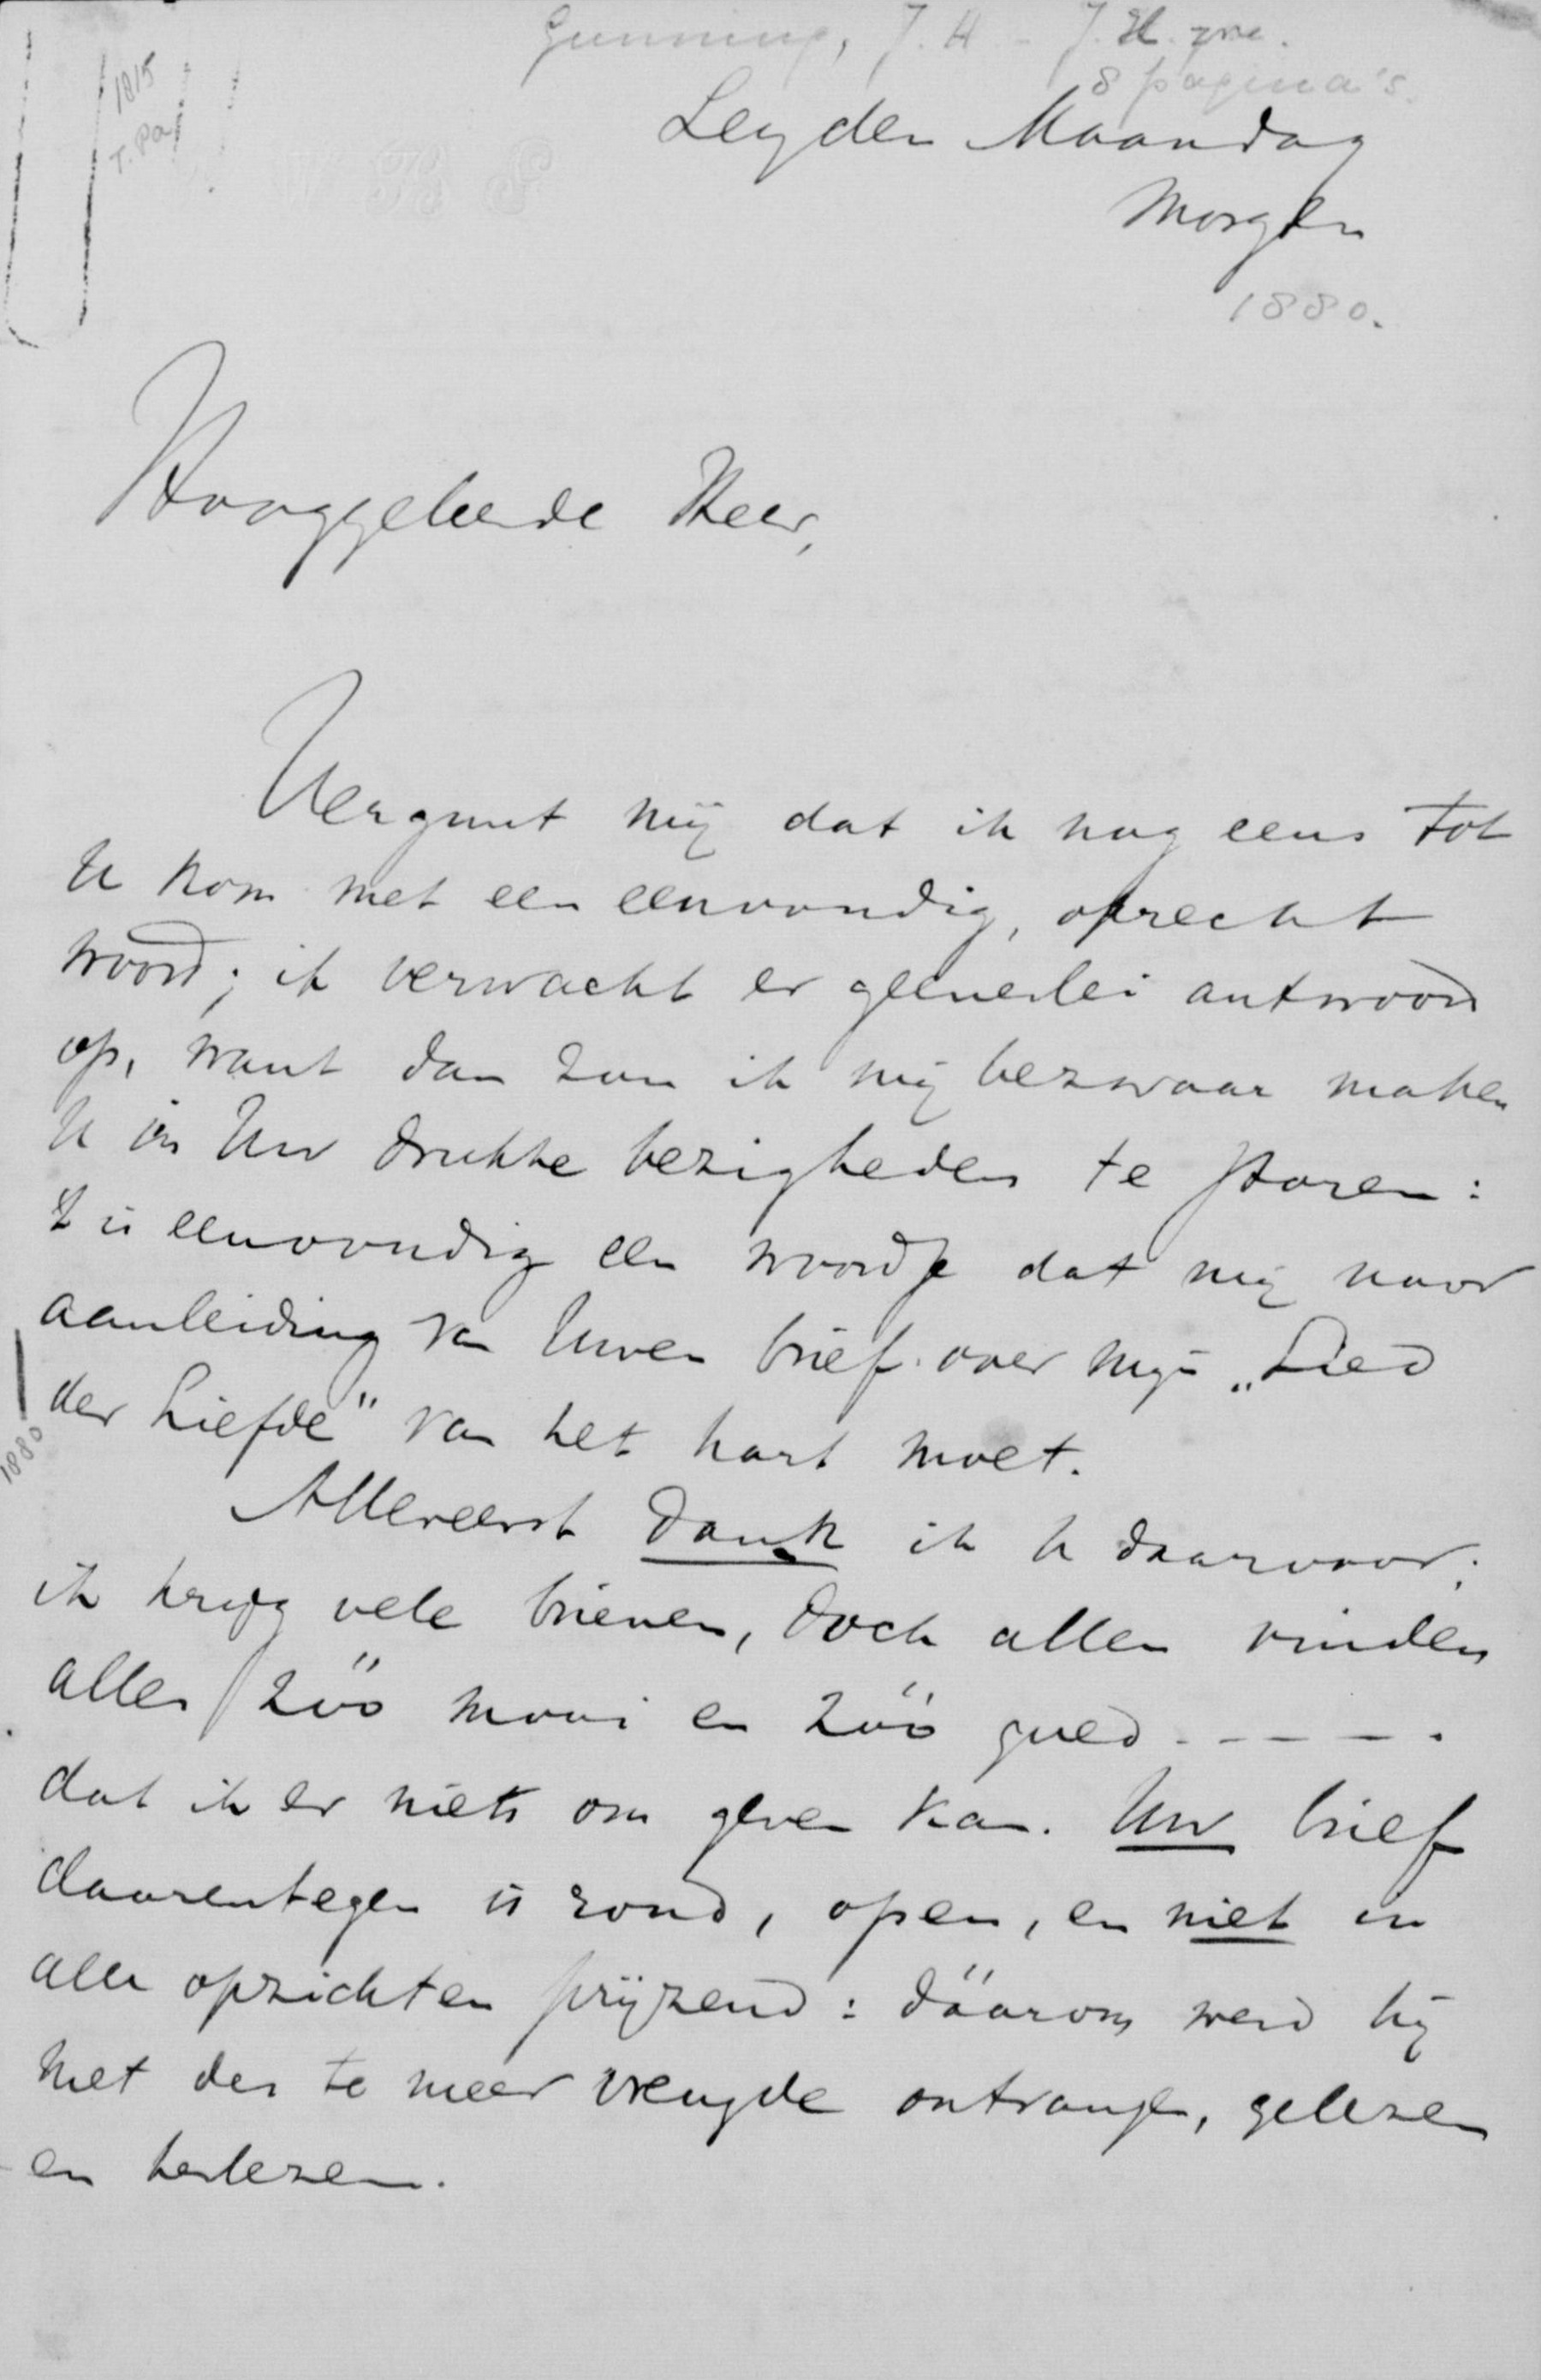 Gunning, J. H. - J. H. zn.
8 pagina's.
1815
Leyden Maandag
Morgen
1880.
Hooggeleerde Heer,
Vergunt mij dat ik nog eens tot
U kom met een eenvoudig, oprecht
woord; ik verwacht er geenerlei antwoord
op, want dan zou ik mij bezwaar maken
U in Uw drukke bezigheden te storen:
't is eenvoudig een woordje dat mij naar
aanleiding van Uwen brief over mijn „Lied
der Liefde" van het hart moet.
1880
Allereerst dank ik U daarvoor;
ik krijg vele brieven, doch allen vinden
alles zóó mooi en zóó goed - - - - -
dat ik er niets om geven kan. Uw brief
daarentegen is rond, open, en niet in
alle opzichten prijzend: dáárom werd hij
met des te meer vreugde ontvangen, gelezen
en herlezen.